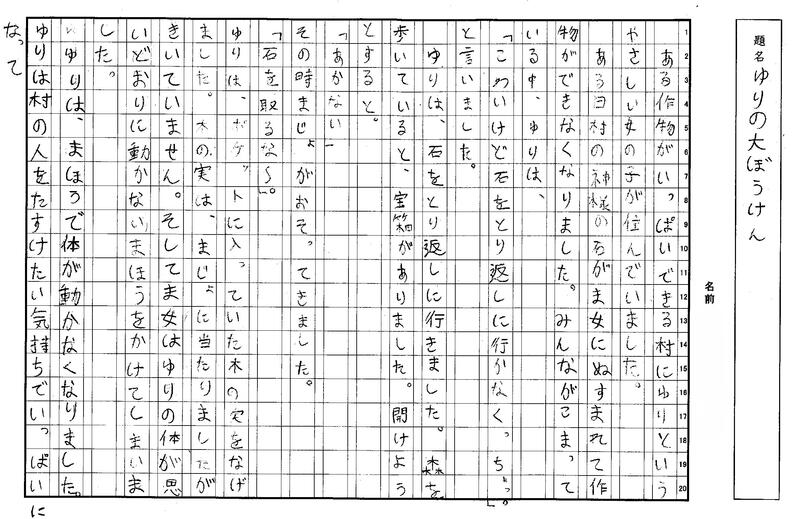 題名 ゆりの大ぼうけん
名前
1 2 3 4 5 6 7 8 9 10 11 12 13 14 15 16 17 18 19 20
ある作物がいっぱいできる村にゆりという
やさしい女の子が住んでいました。
ある日村の神様の石がま女にぬすまれて作
物ができなくなりました。みんながこまって
いる中、ゆりは、
「こわいけど石をとり返しに行かなくっちゃ。」
と言いました。
ゆりは、石をとり返しに行きました。森を
歩いていると、宝箱がありました。開けよう
とすると。
「あかない」
その時まじょがおそってきました。
「石を取るな〜」。
ゆりは、ポケットに入っていた木の実をなげ
ました。木の実は、まじょに当たりましたが
きいていません。そしてま女はゆりの体が思
いどおりに動かない、まほうをかけてしまいま
した。
ゆりは、まほうで体が動かなくなりました。
ゆりは村の人をたすけたい気持ちでいっぱいに
なって